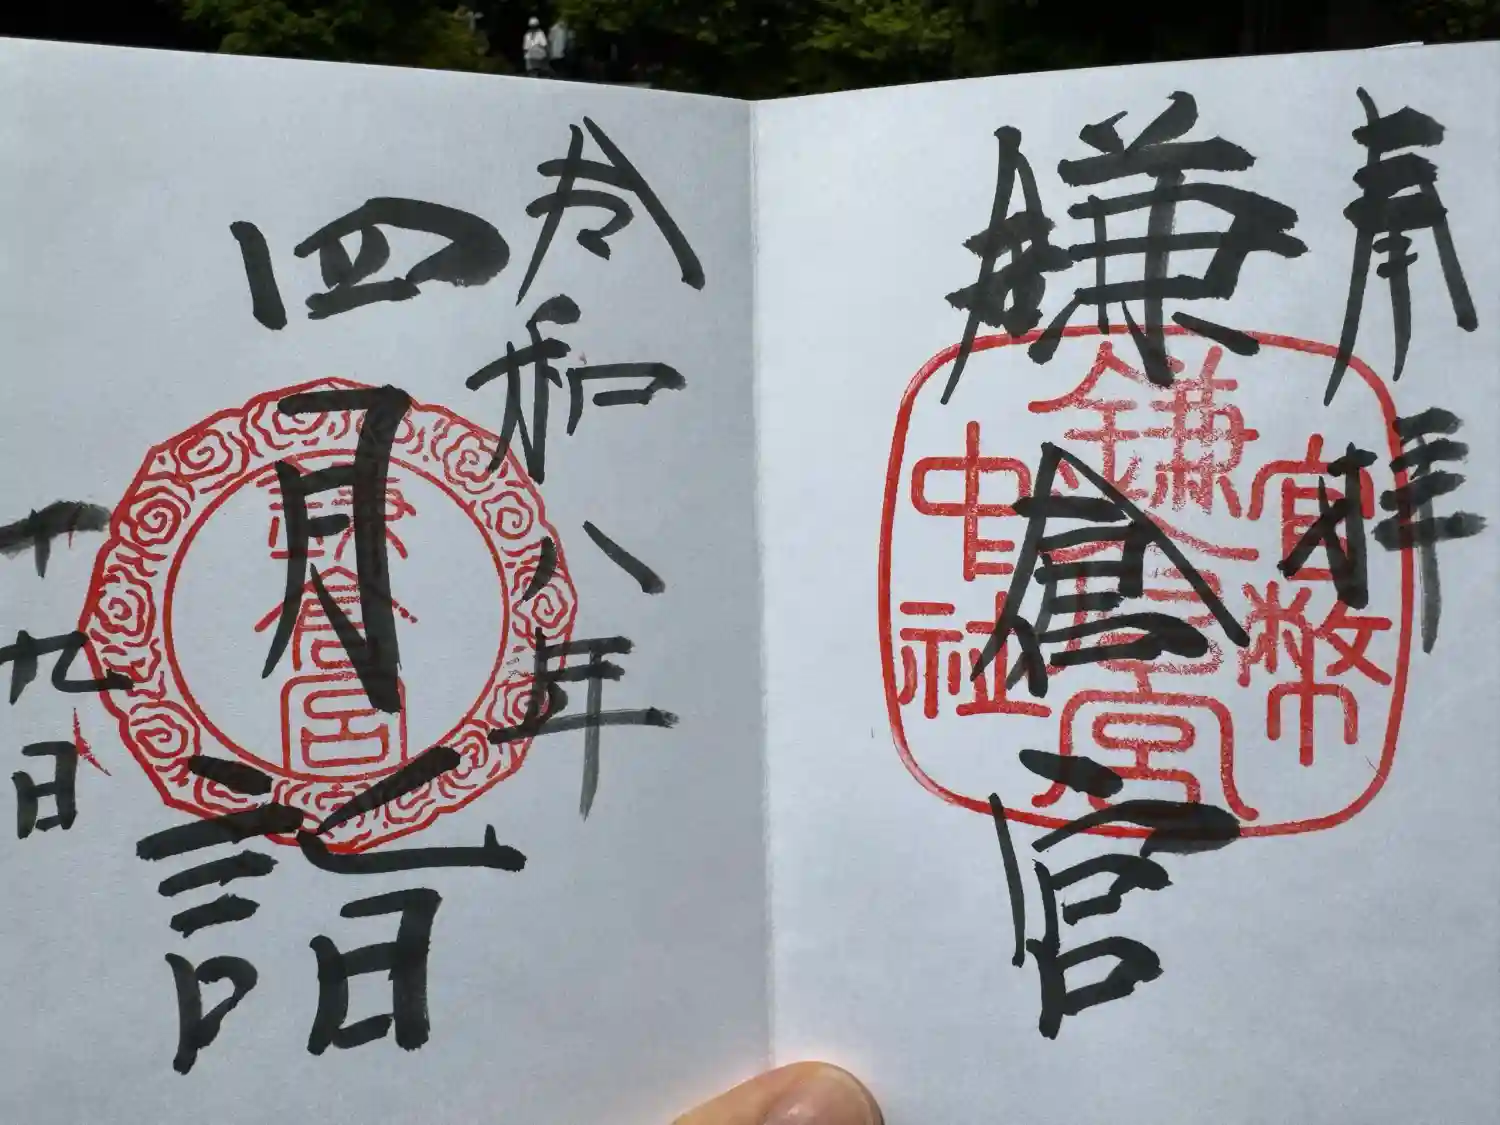 奉拝
鎌倉宮
官幣
鎌倉宮
中社
令和八年
四月詣
十九日
鎌倉宮